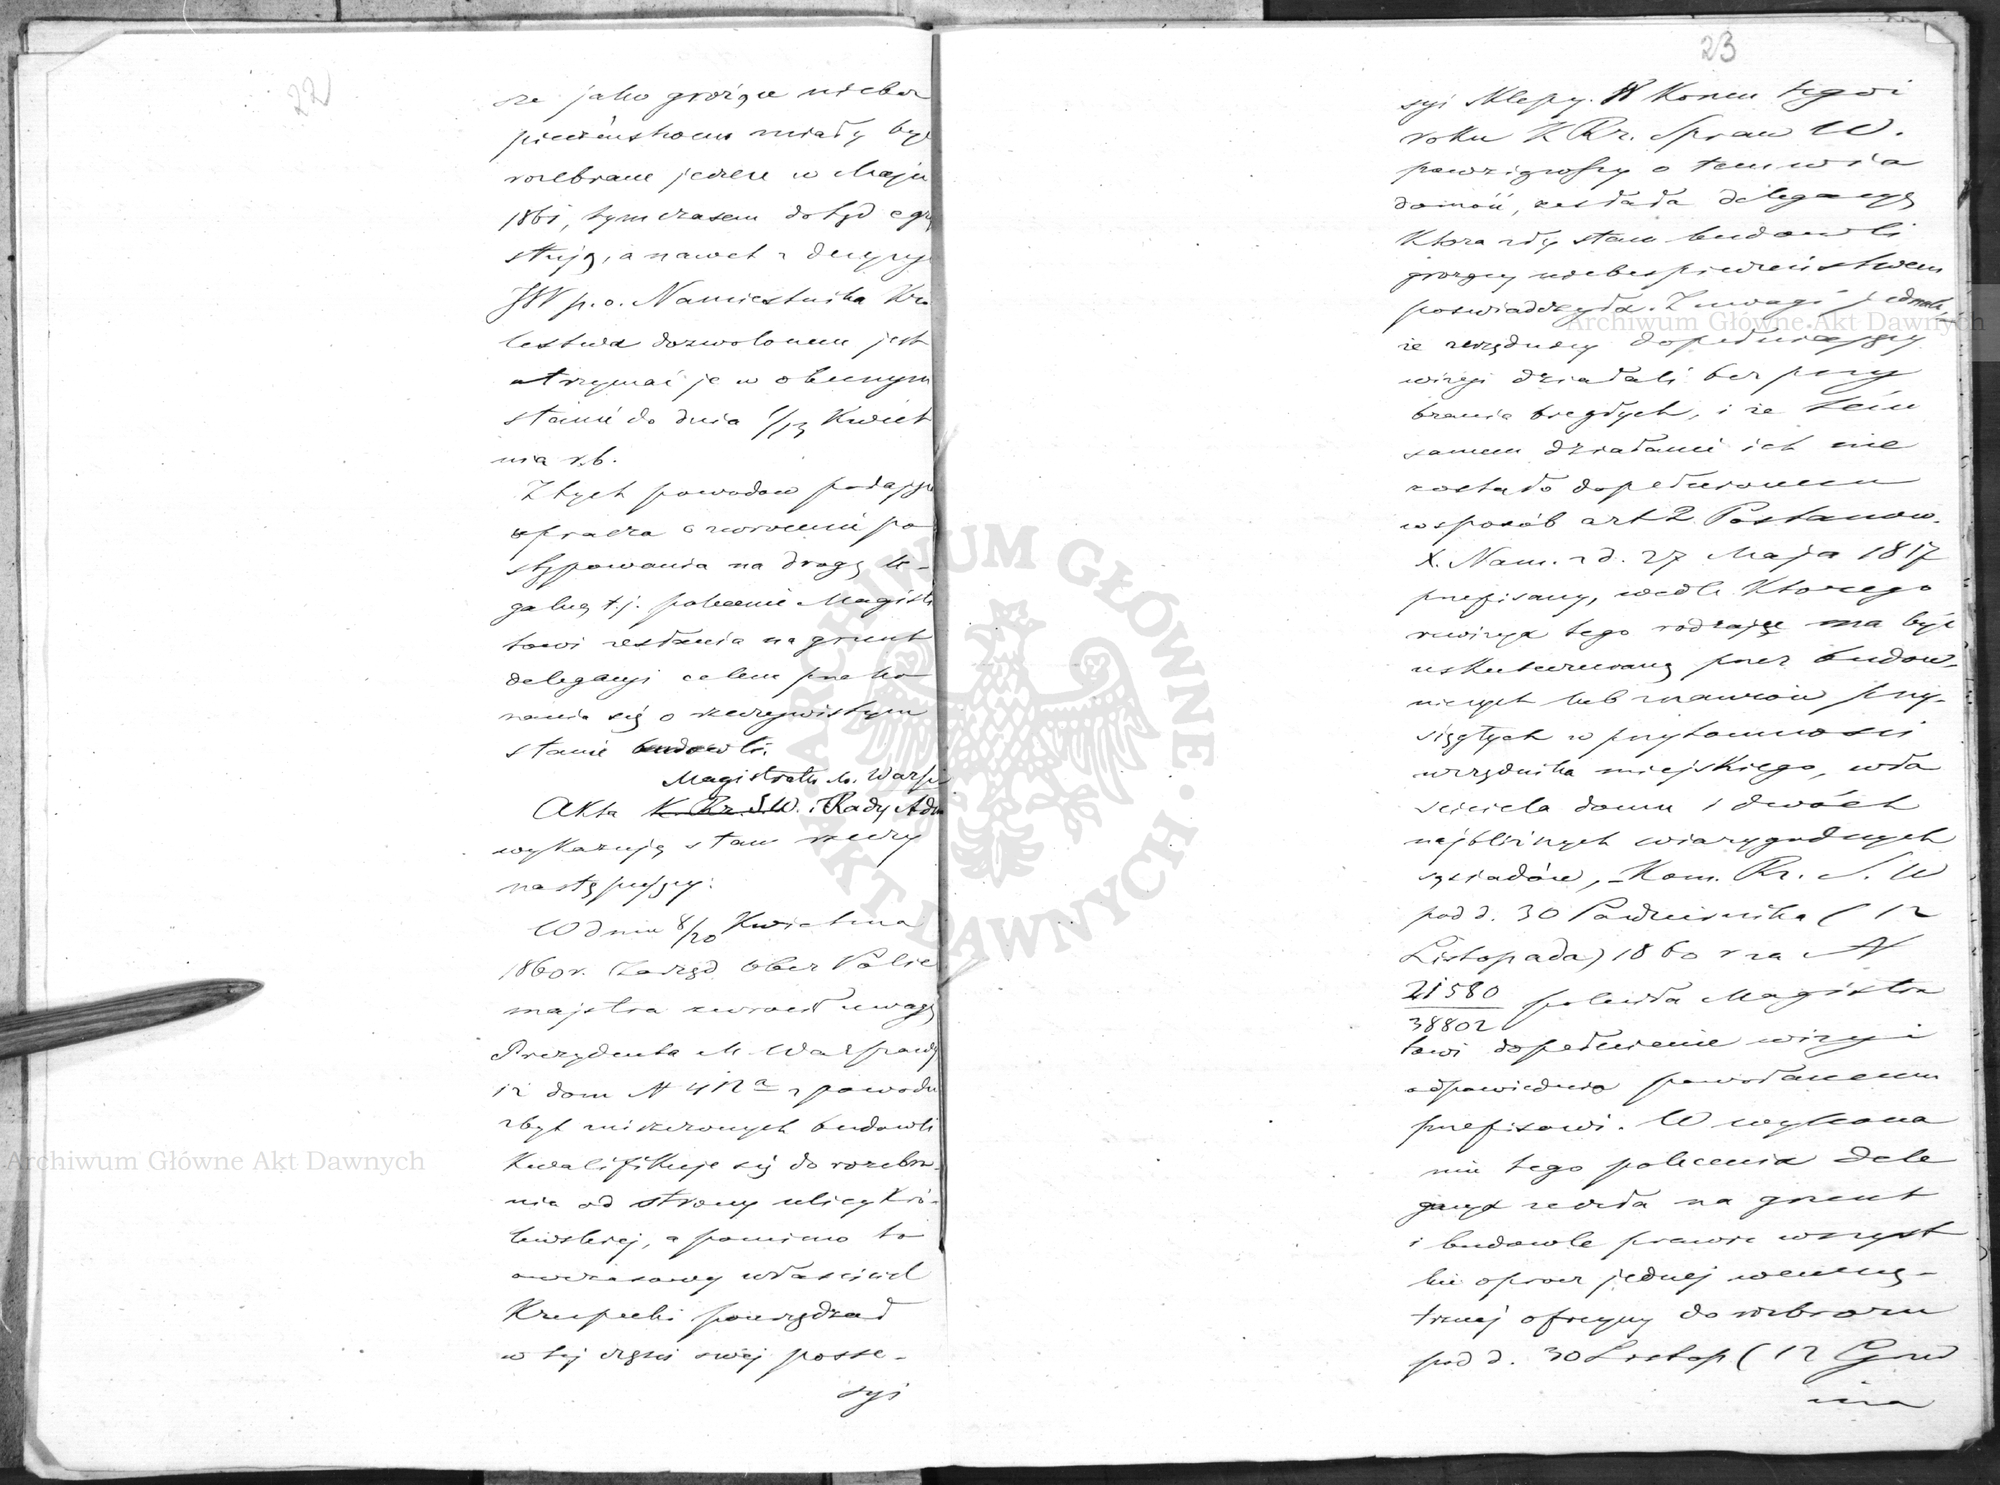 22
sze jako grożące niebez
pieczeństwem miały być
rozebrane jeszcze w Maju
1861, tymczasem dotąd egzy
stują, a nawet z decyzyi
JW p.o. Namiestnika Kró
lestwa dozwolonem jest
utrzymać je w obecnym
stanie do dnia 1/13 Kwiet
nia r.b.
Z tych powodów podający
uprasza o zwrócenie po
stępowania na drogę le-
galną t.j. polecenie Magistra
towi zesłania na grunt
delegacyi celem przeko
nania się o rzeczywistym
stanie budowli.
Magistratu M. Warsz
Akta K. Rz. S.W. i Rady Adm
wykazują stan rzeczy
następujący:
W dniu 8/20 Kwietnia
1860 r. Zarząd Ober Polic
majstra zwrócił uwagę
Prezydenta M. Warszawy
iż dom N 412a z powodu
zbyt zniszczonych budowli
kwalifikuje się do rozebra-
nia od strony ulicy Kró-
lewskiej, a pomimo to
ówczesowy właściciel
Krupecki pourządzał
w tej części swej posse-
syi
23
syi sklepy. W końcu tegoż
roku K Rz. Spraw W.
powziąwszy o tem wia
domość, zesłała delegacyę
która zły stan budowli
grożący niebezpieczeństwem
poświadczyła. Z uwagi jednak,
że urzędnicy dopełniający
wizyi działali bez przy
brania biegłych, i że tém
samem działanie ich nie
zostało dopełnionem
w sposób art 2 Postanow.
X. Nam. z d. 27 Maja 1817
przepisany, wedle którego
rewizya tego rodzaju ma być
uskutecznioną przez budow-
niczych lub znawców przy-
sięgłych w przytomności
urzędnika miejskiego, wła
ściciela domu i dwóch
najbliższych wiarygodnych
sąsiadów, – Kom. Rz. S. W
pod d. 30 Października (12
Listopada) 1860 r za N
21580/38802 poleciła Magistra
towi dopełnienie wizyi
odpowiednio powołanemu
przepisowi. W wykona
niu tego polecenia dele
gacya zeszła na grunt
i budowle prawie wszyst
kie oprócz jednej wewnę-
trznej oficyny do rozbioru
pod d. 30 Listop (12 Grud
nia
Archiwum Główne Akt Dawnych
Archiwum Główne Akt Dawnych
ARCHIWUM GŁÓWNE · AKT DAWNYCH ·